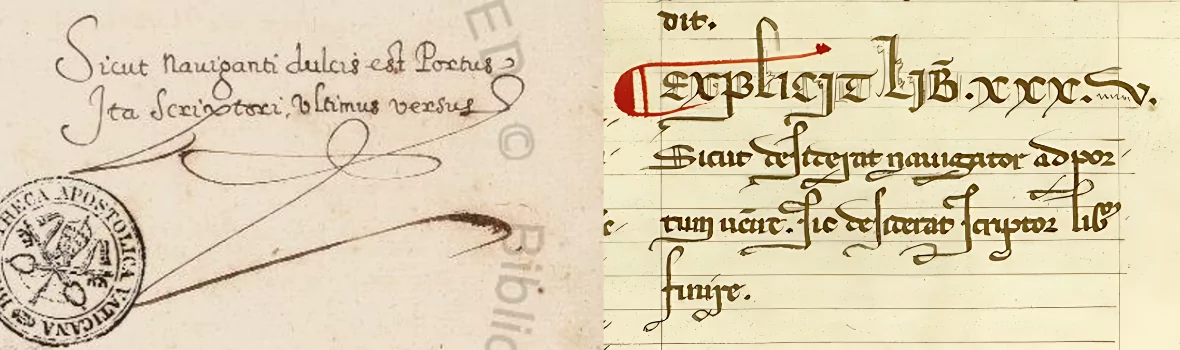 Sicut Nauiganti dulcis est Portus
Ita Scriptori, Vltimus versus
THECA APOSTOLICA VATICANA
©
Bibli
dit.
Explicit Lib̄. xxx.v.
Sicut desiderat nauigator ad por
tum uēire. sic desiderat scriptor
finire.